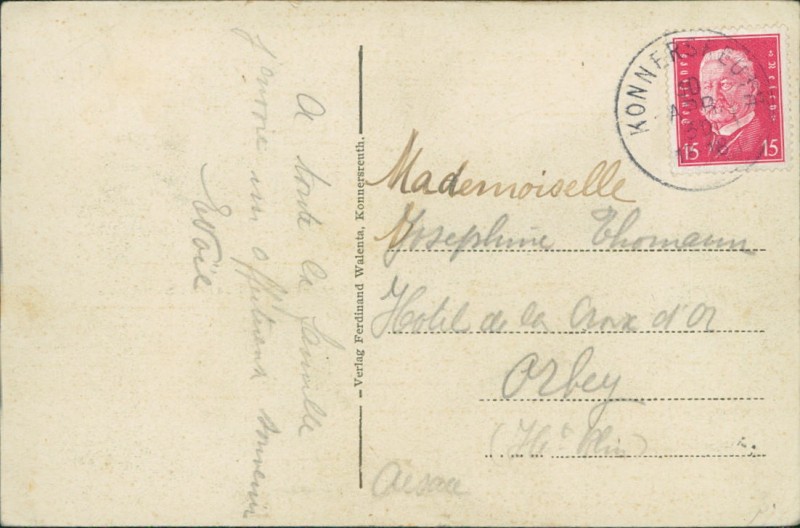 A toute la famille
j'envoie un affectueux souvenir
— Verlag Ferdinand Walenta, Konnersreuth. —
KONNERSREUTH
Deutsches Reich
15 15
Mademoiselle
Josephine Thomann
Hotel de la Croix d'Or
Orbey
(Ht Rhin)
Alsace